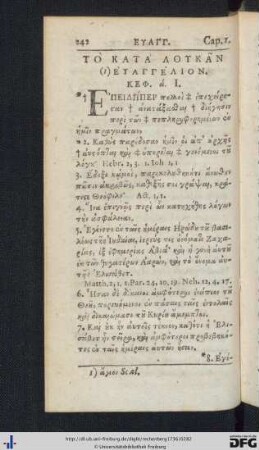 242 ΕΥΑΓΓ. Cap.1.
ΤΟ ΚΑΤΑ ΛΟΥΚΑΝ
(1) ΕΥΑΓΓΕΛΙΟΝ.
ΚΕΦ. ά. I.
*1. ΕΠΕΙΔΗΠΕΡ πολλοὶ ἐπεχείρη-
σαν ἀνατάξασθαι διήγησιν
περὶ τῶν πεπληροφορημένων ἐν
ἡμῖν πραγμάτων.
2. Καθὼς παρέδοσαν ἡμῖν οἱ ἀπ' ἀρχῆς
αὐτόπται καὶ ὑπηρέται γενόμενοι τοῦ
λόγου. Hebr. 2, 3. 1. Ioh. 1, 1
3. Ἔδοξε κἀμοὶ, παρηκολουθηκότι ἄνωθεν
πᾶσιν ἀκριβῶς, καθεξῆς σοι γράψαι, κρά-
τιστε Θεόφιλε. Act. 1, 1.
4. Ἵνα ἐπιγνῷς περὶ ὧν κατηχήθης λόγων
τὴν ἀσφάλειαν.
5. Ἐγένετο ἐν ταῖς ἡμέραις Ἡρώδου τοῦ βασι-
λέως τῆς Ἰουδαίας, ἱερεύς τις ὀνόματι Ζαχα-
ρίας, ἐξ ἐφημερίας Ἀβιά· καὶ ἡ γυνὴ αὐτοῦ
ἐκ τῶν θυγατέρων Ἀαρὼν, καὶ τὸ ὄνομα αὐ-
τῆς Ἐλισάβετ.
Matth. 2, 1. 1. Par. 24, 10. 19. Neh. 12, 4. 17.
6. Ἦσαν δὲ δίκαιοι ἀμφότεροι ἐνώπιον τοῦ
Θεοῦ, πορευόμενοι ἐν πάσαις ταῖς ἐντολαῖς
καὶ δικαιώμασι τοῦ Κυρίου ἄμεμπτοι.
7. Καὶ οὐκ ἦν αὐτοῖς τέκνον, καθότι ἡ Ἐλι-
σάβετ ἦν στεῖρα, καὶ ἀμφότεροι προβεβηκό-
τες ἐν ταῖς ἡμέραις αὐτῶν ἦσαν.
*8. Ἐγέ-
http://dl.ub.uni-freiburg.de/diglit/rechenberg1736/0282
© Universitätsbibliothek Freiburg
gefördert durch die
DFG